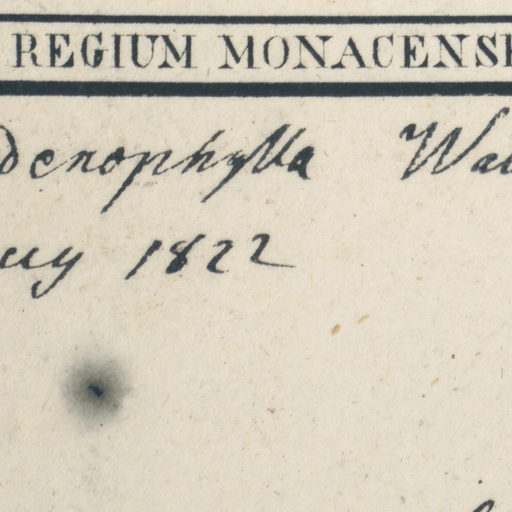 REGIUM MONACENS
denophylla Wal
uy 1822